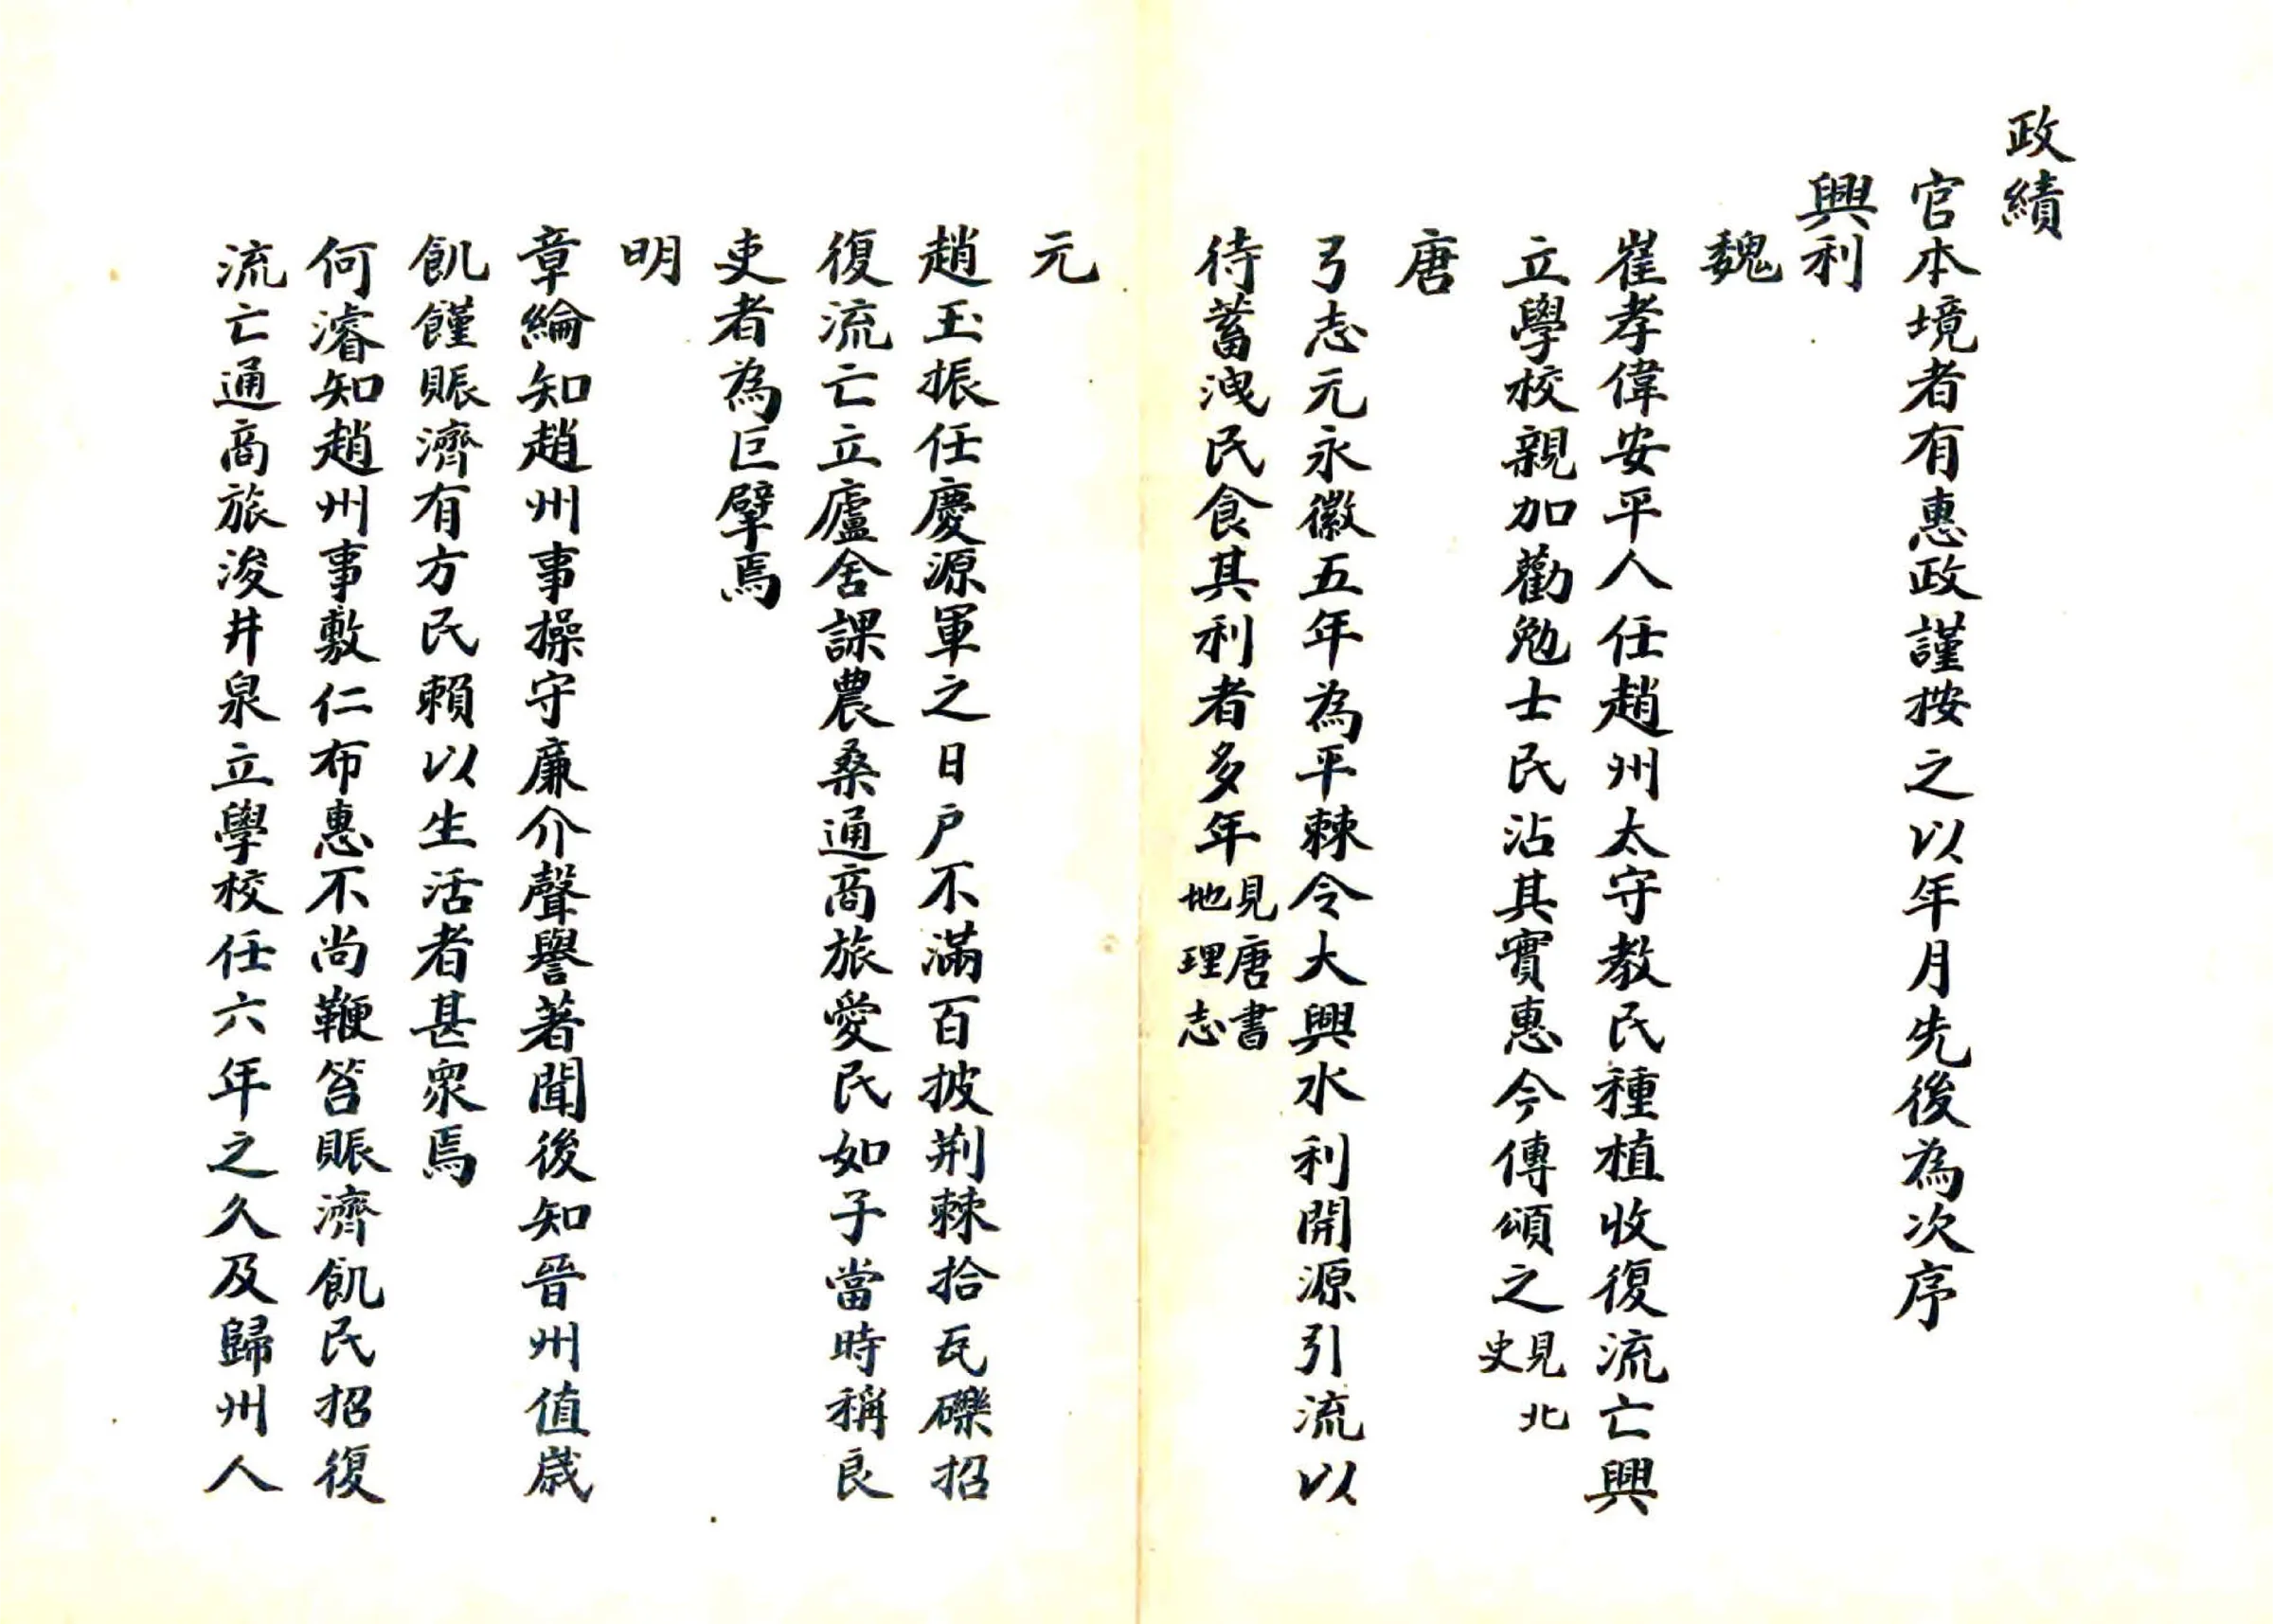 政績
官本境者有惠政謹按之以年月先後為次序
興利
魏
崔孝偉安平人任趙州太守教民種植收復流亡興
立學校親加勸勉士民沾其實惠今傳頌之見北史
唐
弓志元永徽五年為平棘令大興水利開源引流以
待蓄洩民食其利者多年見唐書地理志
元
趙玉振任慶源軍之日户不滿百披荆棘拾瓦礫招
復流亡立廬舍課農桑通商旅愛民如子當時稱良
吏者為巨擘焉
明
章綸知趙州事操守廉介聲譽著聞後知晉州值歲
飢饉賑濟有方民賴以生活者甚衆焉
何濬知趙州事敷仁布惠不尚鞭笞賑濟飢民招復
流亡通商旅浚井泉立學校任六年之久及歸州人